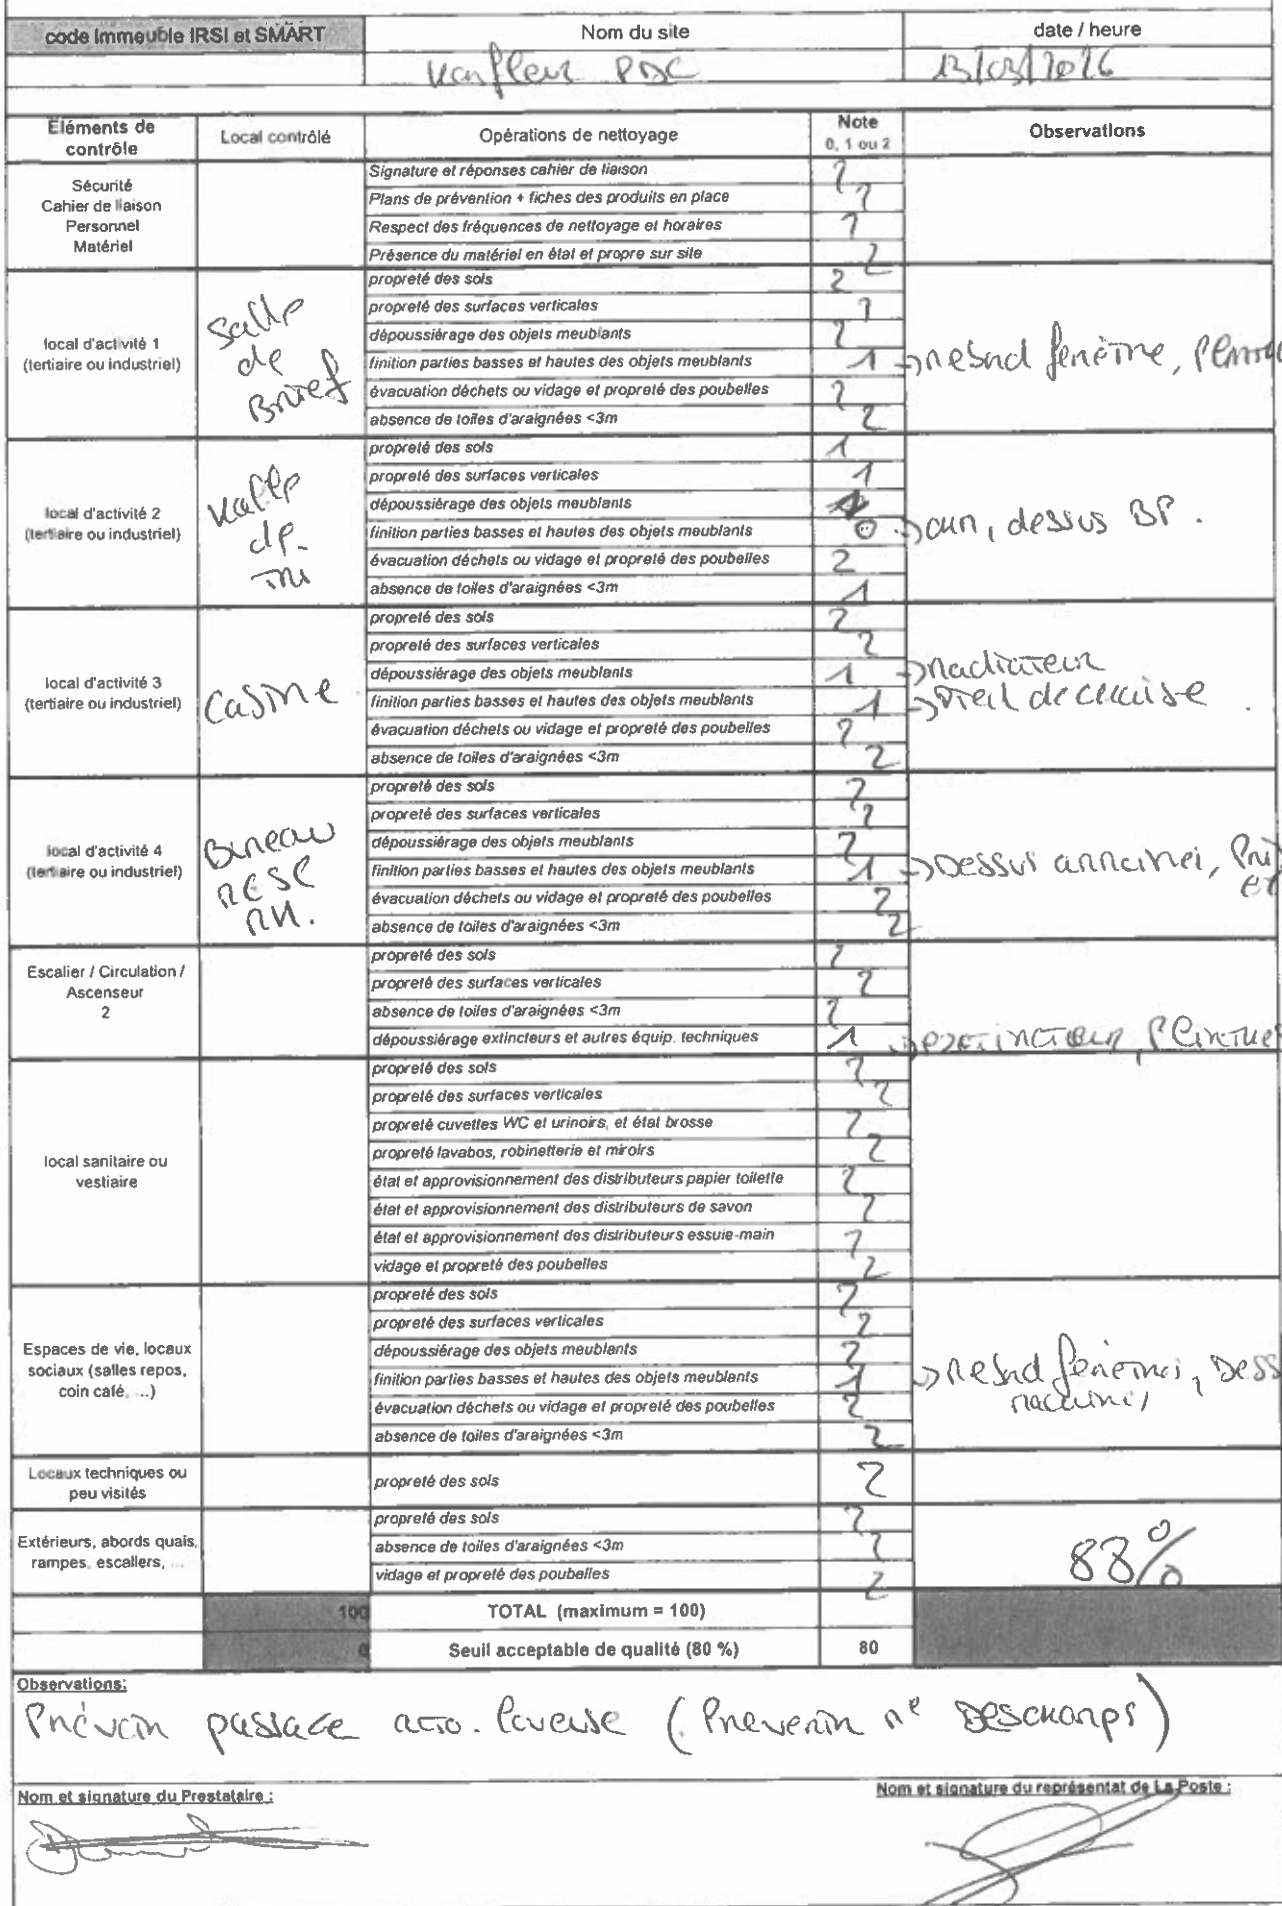 code Immeuble IRSI et SMART Nom du site date / heure
Harfleur PDC 13/03/2026
Eléments de contrôle Local contrôlé Opérations de nettoyage Note 0, 1 ou 2 Observations
Sécurité
Cahier de liaison
Personnel
Matériel
Signature et réponses cahier de liaison 2
Plans de prévention + fiches des produits en place 2
Respect des fréquences de nettoyage et horaires 2
Présence du matériel en état et propre sur site 2
local d'activité 1
(tertiaire ou industriel)
Salle
de
Brief
propreté des sols 2
propreté des surfaces verticales 2
dépoussiérage des objets meublants 2
finition parties basses et hautes des objets meublants 1 → rebord fenêtre,
évacuation déchets ou vidage et propreté des poubelles 2
absence de toiles d'araignées <3m 2
local d'activité 2
(tertiaire ou industriel)
Halle
de
Tri
propreté des sols 1
propreté des surfaces verticales 1
dépoussiérage des objets meublants
finition parties basses et hautes des objets meublants 0 → dessus BP.
évacuation déchets ou vidage et propreté des poubelles 2
absence de toiles d'araignées <3m 1
local d'activité 3
(tertiaire ou industriel)
propreté des sols 2
propreté des surfaces verticales 2
dépoussiérage des objets meublants 1 → radiateur
finition parties basses et hautes des objets meublants 1 → Pied de chaise
évacuation déchets ou vidage et propreté des poubelles 2
absence de toiles d'araignées <3m 2
local d'activité 4
(tertiaire ou industriel)
Bureau
RESP
RH.
propreté des sols 2
propreté des surfaces verticales 2
dépoussiérage des objets meublants 2
finition parties basses et hautes des objets meublants 1 → Dessus armoires,
évacuation déchets ou vidage et propreté des poubelles 2
absence de toiles d'araignées <3m 2
Escalier / Circulation /
Ascenseur
2
propreté des sols 2
propreté des surfaces verticales 2
absence de toiles d'araignées <3m 2
dépoussiérage extincteurs et autres équip. techniques 1 → extincteur, Plinthes
local sanitaire ou
vestiaire
propreté des sols 2
propreté des surfaces verticales 2
propreté cuvettes WC et urinoirs, et état brosse 2
propreté lavabos, robinetterie et miroirs 2
état et approvisionnement des distributeurs papier toilette 2
état et approvisionnement des distributeurs de savon 2
état et approvisionnement des distributeurs essuie-main 2
vidage et propreté des poubelles 2
Espaces de vie, locaux
sociaux (salles repos,
coin café, ...)
propreté des sols 2
propreté des surfaces verticales 2
dépoussiérage des objets meublants 2
finition parties basses et hautes des objets meublants 1 → rebord fenêtres, Dess
machines
évacuation déchets ou vidage et propreté des poubelles 2
absence de toiles d'araignées <3m 2
Locaux techniques ou
peu visités
propreté des sols 2
Extérieurs, abords quais,
rampes, escaliers, ...
propreté des sols 2
absence de toiles d'araignées <3m 2
vidage et propreté des poubelles 2
88%
100 TOTAL (maximum = 100)
0 Seuil acceptable de qualité (80 %) 80
Observations:
Prévoir passage auto. laveuse (Prévenir Deschamps)
Nom et signature du Prestataire :
Nom et signature du représentat de La Poste :